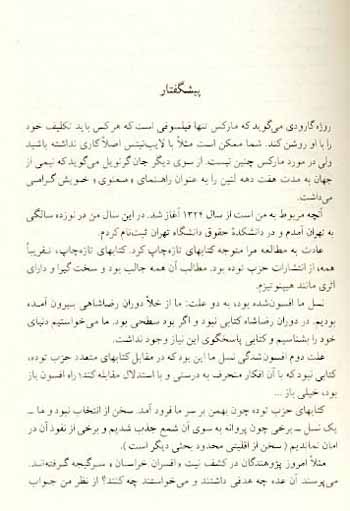 پیشگفتار
روژه گارودی می‌گوید که مارکس تنها فیلسوفی است که هر کس باید تکلیف خود
را با او روشن کند. شما ممکن است مثلاً با لایب‌نیتس اصلاً کاری نداشته باشید
ولی در مورد مارکس چنین نیست. از سوی دیگر جان گرنویل می‌گوید که نیمی از
جهان به مدت هفت دهه لنین را به عنوان راهنمای «معنوی» خویش گرامی
می‌داشت.
آنچه مربوط به من است از سال ۱۳۲۴ آغاز شد. در این سال من در نوزده سالگی
به تهران آمدم و در دانشکدهٔ حقوق دانشگاه تهران ثبت‌نام کردم.
عادت به مطالعه مرا متوجه کتابهای تازه‌چاپ کرد. کتابهای تازه‌چاپ، تقریباً
همه، از انتشارات حزب توده بود. مطالب آن همه جالب بود و سخت گیرا و دارای
اثری مانند هیپنوتیزم.
نسل ما افسون‌شده بود، به دو علت: ما از خلأ دوران رضاشاهی بیرون آمده
بودیم. در دوران رضاشاه کتابی نبود و اگر بود سطحی بود. ما می‌خواستیم دنیای
خود را بشناسیم و کتابی پاسخگوی این نیاز وجود نداشت.
علت دوم افسون‌شدگی نسل ما این بود که در مقابل کتابهای متعدد حزب توده،
کتابی نبود که با آن افکار منحرف به درستی و با استدلال مقابله کند؛ راه افسون باز
بود، خیلی باز ...
کتابهای حزب توده چون بهمن بر سر ما فرود آمد. سخن از انتخاب نبود و ما ـ
یک نسل ـ برخی چون پروانه به سوی آن شمع جذب شدیم و برخی از نفوذ آن در
امان نماندیم (سخن از اقلیتی محدود بحثی دیگر است).
مثلاً امروز پژوهندگان در کشف نیت «افسران خراسان» سرگیجه گرفته‌اند.
می‌پرسند آن عده چه هدفی داشتند و می‌خواستند چه کنند؟ از نظر من جواب